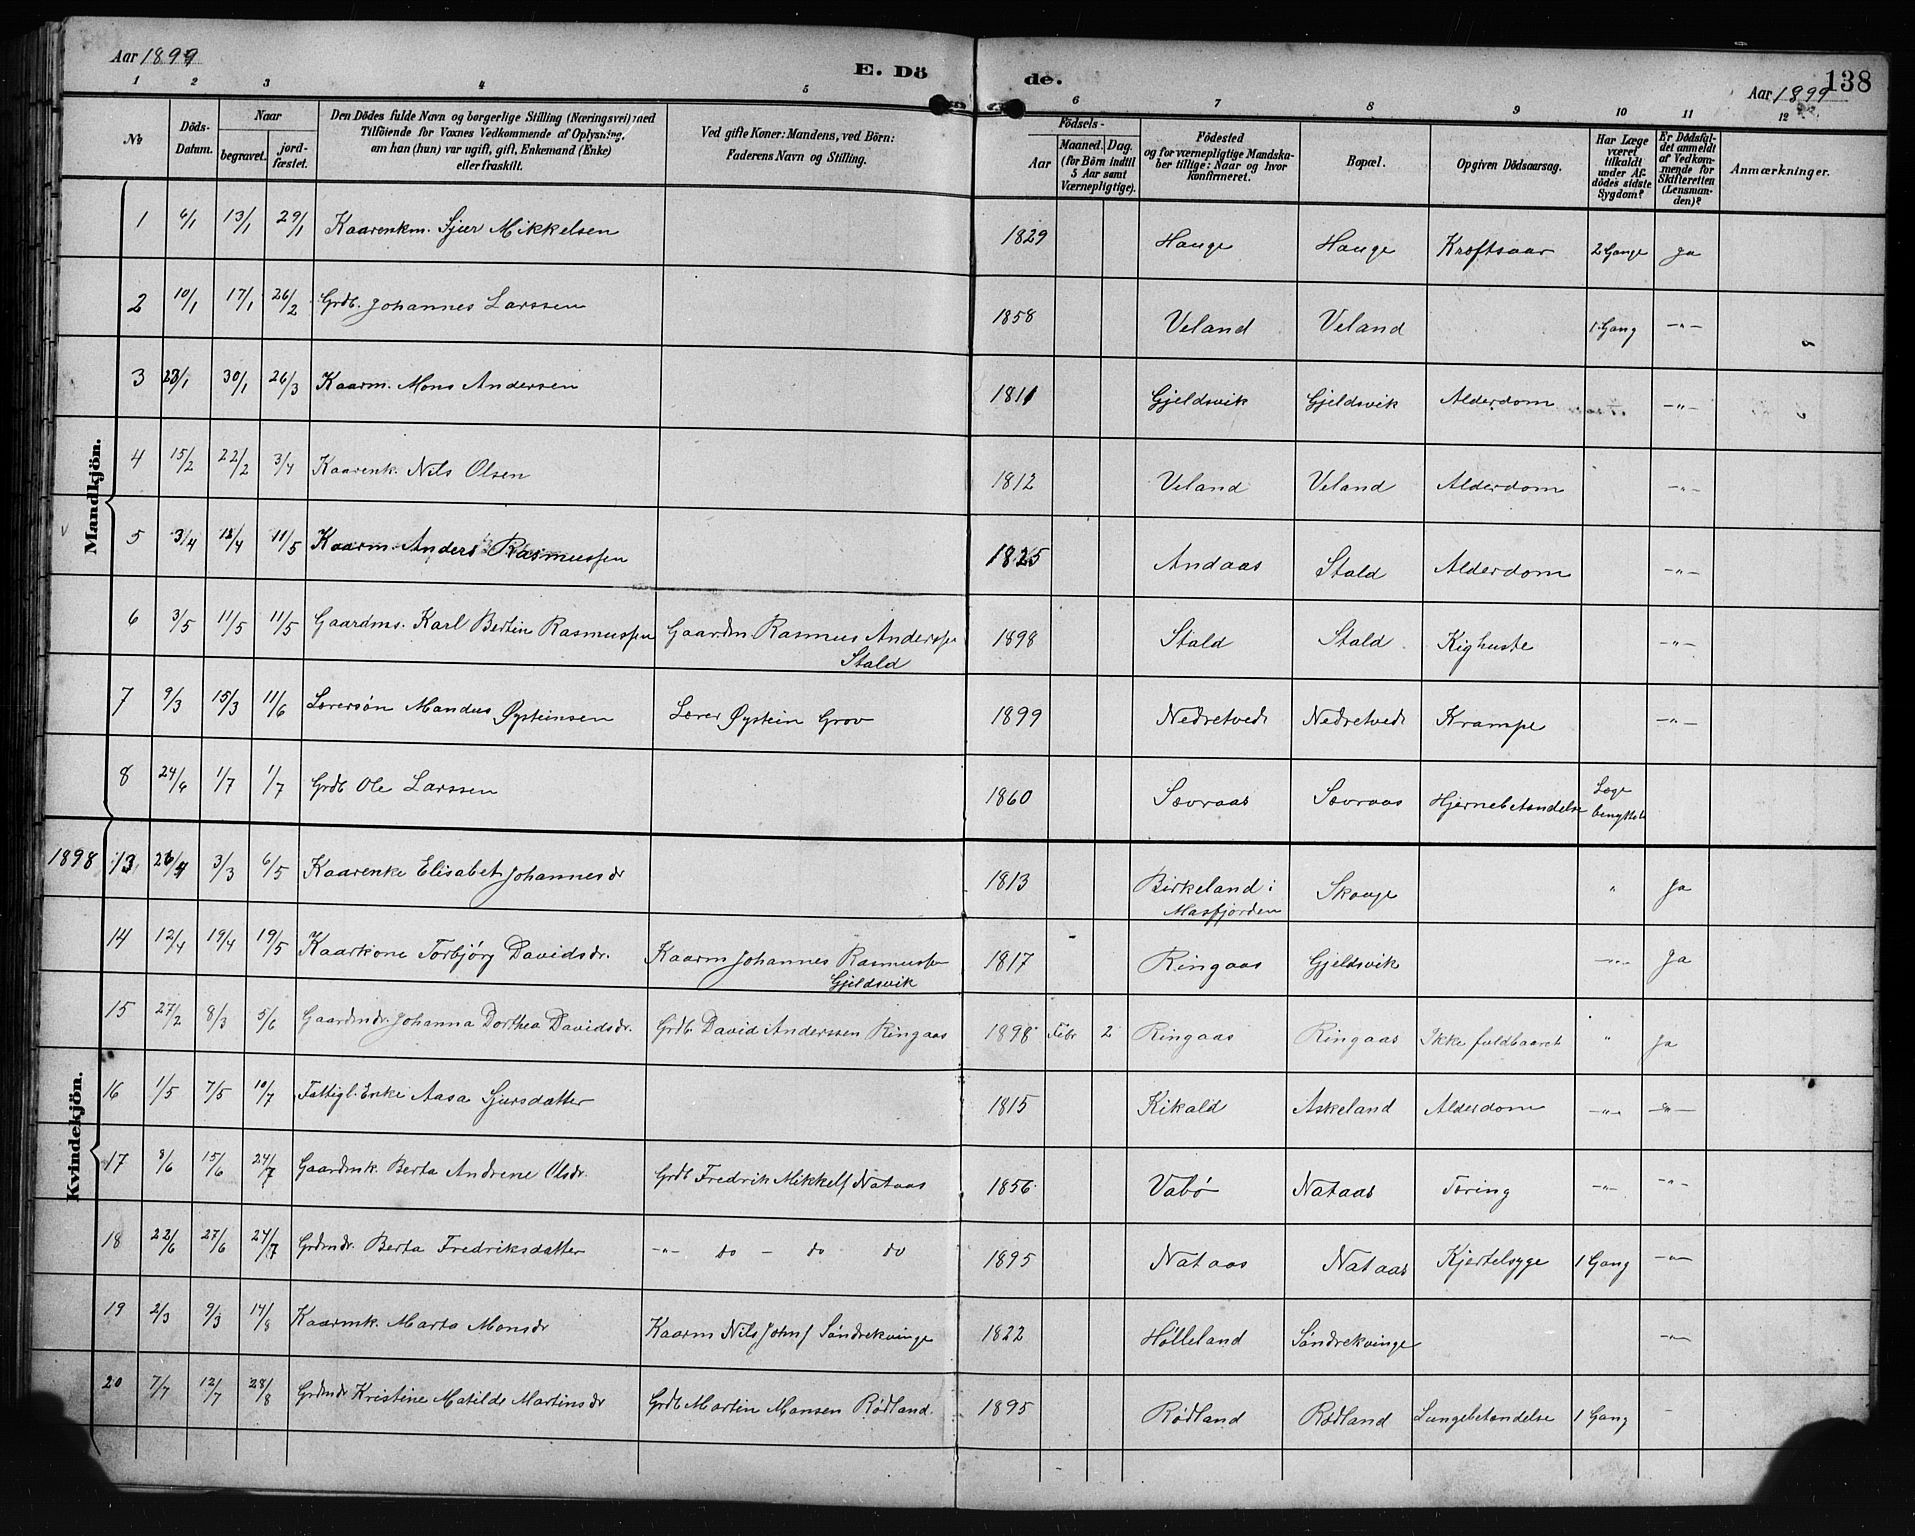 Aar 1899 E. Dö de. Aar 1899 138
1 2 3 4 5 6 7 8 9 10 11 12
No Döds-Datum. Naar begravet. jordfæstet. Den Dödes fulde Navn og borgerlige Stilling (Næringsvei) med Tilföiende for Voxnes Vedkommende af Oplysning, om han (hun) var ugift, gift, Enkemand (Enke) eller fraskilt. Ved gifte Koner: Mandens, ved Börn: Faderens Navn og Stilling. Födsels- Aar Maaned. Dag. (for Börn indtil 5 Aar samt Værnepligtige). Födested og for værnepligtige Mandskaber tillige: Naar og hvor konfirmeret. Bopæl. Opgiven Dödsaarsag. Har Læge været tilkaldt under Afdödes sidste Sygdom? Er Dödsfaldet anmeldt af Vedkommende for Skifteretten (Lensmanden)? Anmærkninger.
Mandkjön.
1 6/1 13/1 29/1 Kaarenkm. Sjur Mikkelsen 1829 Hauge Hauge Kræftsaar 2 Gange Ja
2 10/1 17/1 26/2 Grdb. Johannes Larssen 1858 Veland Veland 1 Gang -"-
3 23/1 30/1 26/3 Kaarm. Mons Andersen 1811 Gjeldsvik Gjeldsvik Alderdom -"-
4 15/2 22/2 3/4 Kaarenk. Nils Olsen 1812 Veland Veland Alderdom -"-
5 3/4 12/4 11/5 Kaarm. Anders Rasmussen 1825 Andaas Stald Alderdom -"-
6 3/5 11/5 11/5 Gaardms. Karl Bertin Rasmussen Gaardm. Rasmus Anderss. 1898 Stald Stald Kighoste -"-
Stald
7 9/3 15/3 11/6 Lærersøn Mandus Øysteinsen Lærer Øystein Grov 1899 Nedretvedt Nedretvedt Krampe -"-
8 24/6 1/7 1/7 Grdb Ole Larssen 1860 Sævraas Sævraas Hjernebetændelse Læge benyttet
Kvindekjön.
1898 13 26/4 3/3 6/5 Kaarenke Elisabet Johannesdr 1813 Birkeland i Skauge " Ja
Masfjorden
14 12/4 19/4 19/5 Kaarkone Torbjørg Davidsdr. Kaarm Johannes Rasmuss. 1817 Ringaas Gjeldsvik -"- Ja
Gjeldsvik
15 27/2 8/3 5/6 Gaardmdr. Johanna Dorthea Davidsdr. Grdb. David Anderssen Ringaas 1898 Febr 2 Ringaas Ringaas Ikke fuldbaaret " Ja
16 1/5 7/5 10/7 Fattigl. Enke Aasa Sjursdatter 1815 Kikald Askeland Alderdom -"- -"-
17 8/6 15/6 24/7 Gaardmk. Berta Andrene Olsdr. Grdb Fredrik Mikkels. Nataas 1856 Vabø Nataas Tæring -"- -"-
18 22/6 27/6 24/7 Grdmdr. Berta Fredriksdatter -"- do - do do 1895 Nataas Nataas Kjertelsyge 1 Gang -"-
19 2/3 9/3 14/8 Kaarmk. Marta Monsdr Kaarm Nils Johns. Søndrekvinge 1822 Hølleland Søndrekvinge -"-
20 7/7 12/7 28/8 Grdmdr Kristine Matilde Martinsdr Grdb Martin Monsen Rødland. 1895 Rødland Rødland Lungebetændelse 1 Gang -